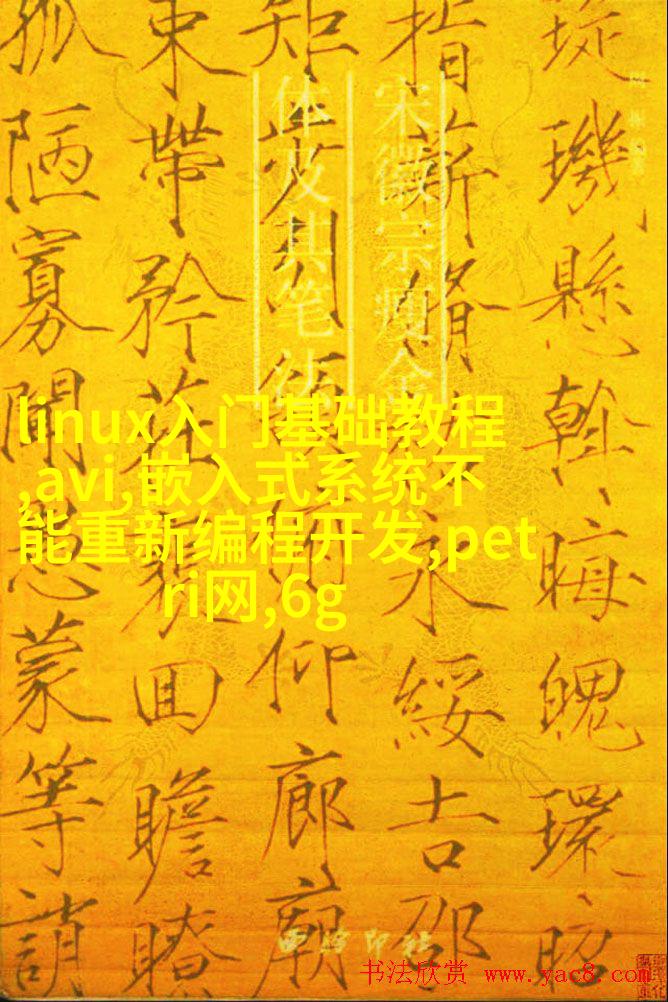 琁璣懸斡晦魄環照
指薪脩祜永綏吉邵
矩步引領俯仰廊廟
束帶矜莊裴回瞻眺
孤陋寡聞愚蒙等誚
宋徽宗瘦金
体及其笔法
linux入门基础教程
,avi,嵌入式系统不
能重新编程开发,pet
ri网,6g
西泠印社
书法欣赏 www.yac8.com